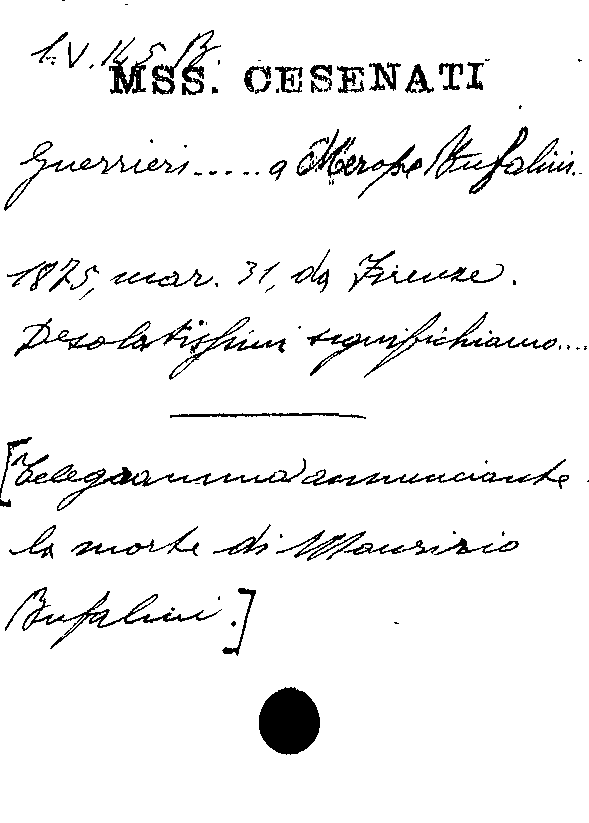 1.V.145 B.
MSS. CESENATI
Guerrieri..... a Merope Bufalini.
1875, mar. 31, da Firenze.
Desolatissimi significhiamo....
[Telegramma annunciante
la morte di Maurizio
Bufalini.]